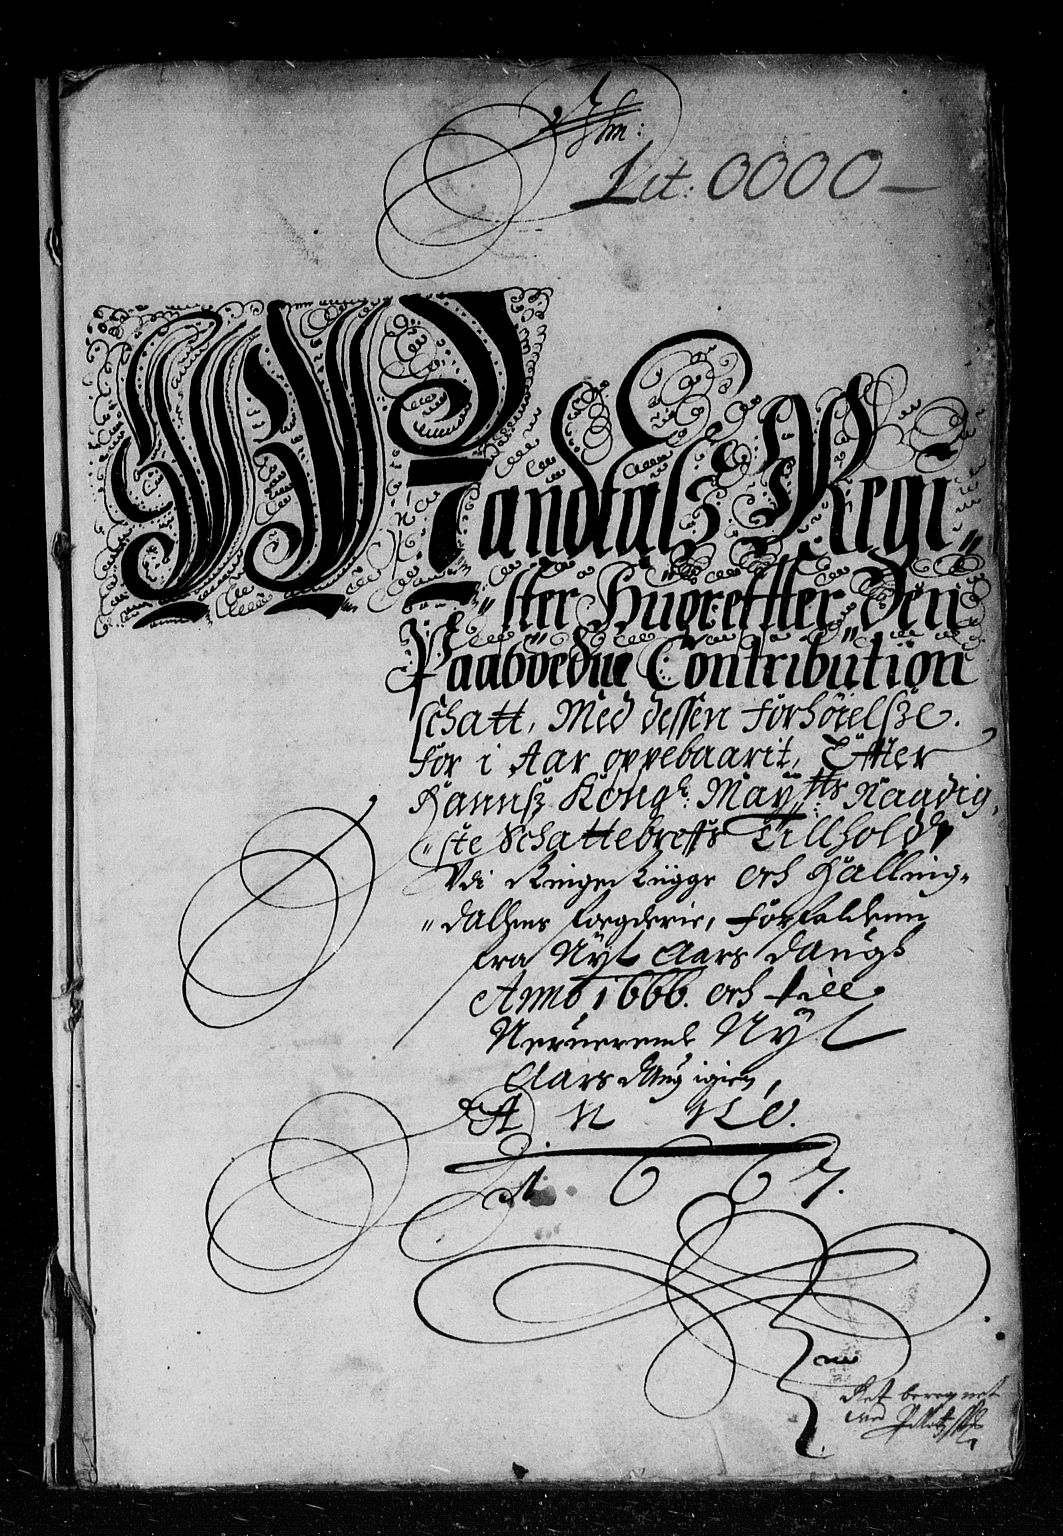 Lit: OOOO
Mandtals Regi-
ster Huoreffter Den
Paabödne Contribution
schatt, Med dessen forhöielsze.
for i Aar oppebaarit, Effter
Hannsz Kongl: Maytts Naadig,
ste Schattebreffs Tillhold
Vdi Ringe Rigge och Halling-
dalhens fogderie, forfalden
fra Nyt Aars daugh
Anno 1666. och till
Neruerende Nyt
Aars daug igien,
A N N O.
1 6 6 7.
Ret beregnet